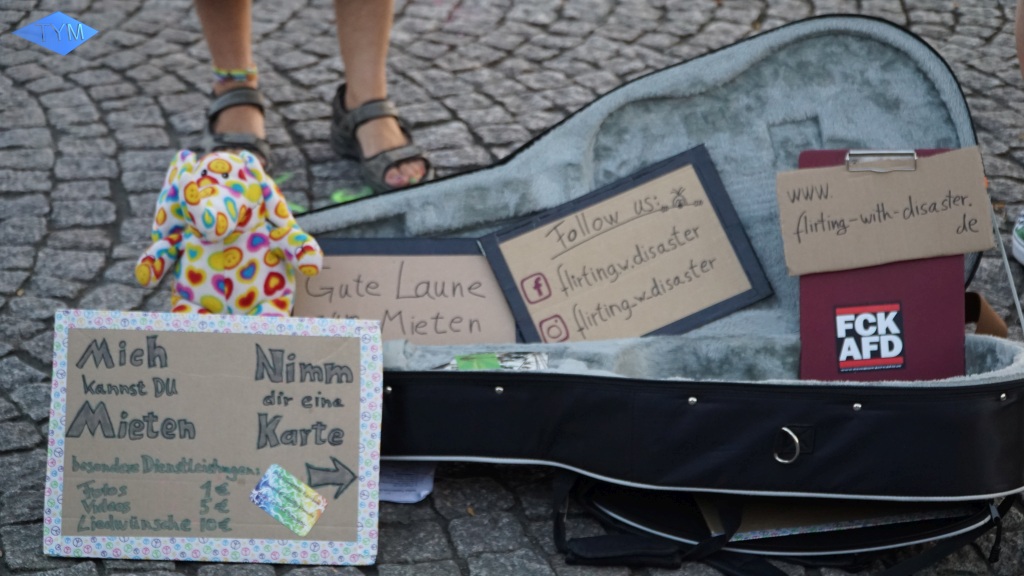 TYM
Mich
kannst DU
Mieten
Nimm
dir eine
Karte
besondere Dienstleistungen:
Fotos 1€
Videos 5€
Liedwünsche 10€
Gute Laune
Mieten
Follow us:
flirting.w.disaster
flirting.w.disaster
www.
flirting-with-disaster.
de
FCK
AFD